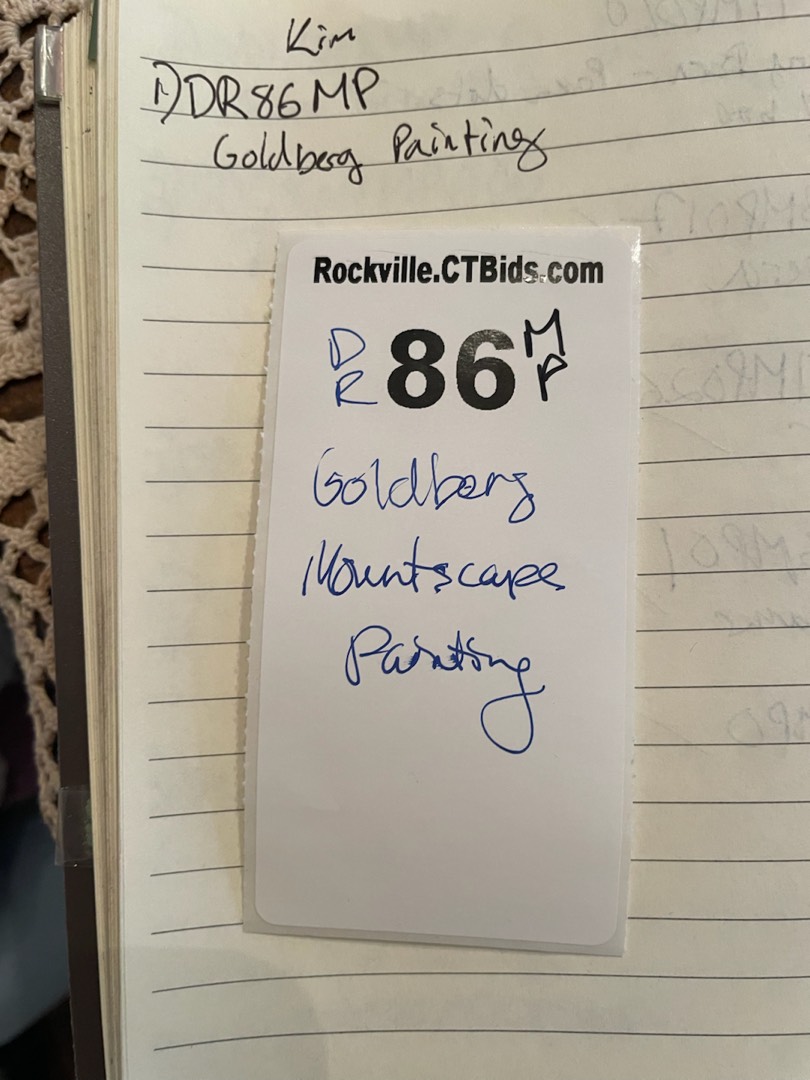 Kim
1) DR86MP
Goldberg Painting
Rockville.CTBids.com
DR 86 MP
Goldberg
Mountscape
Painting